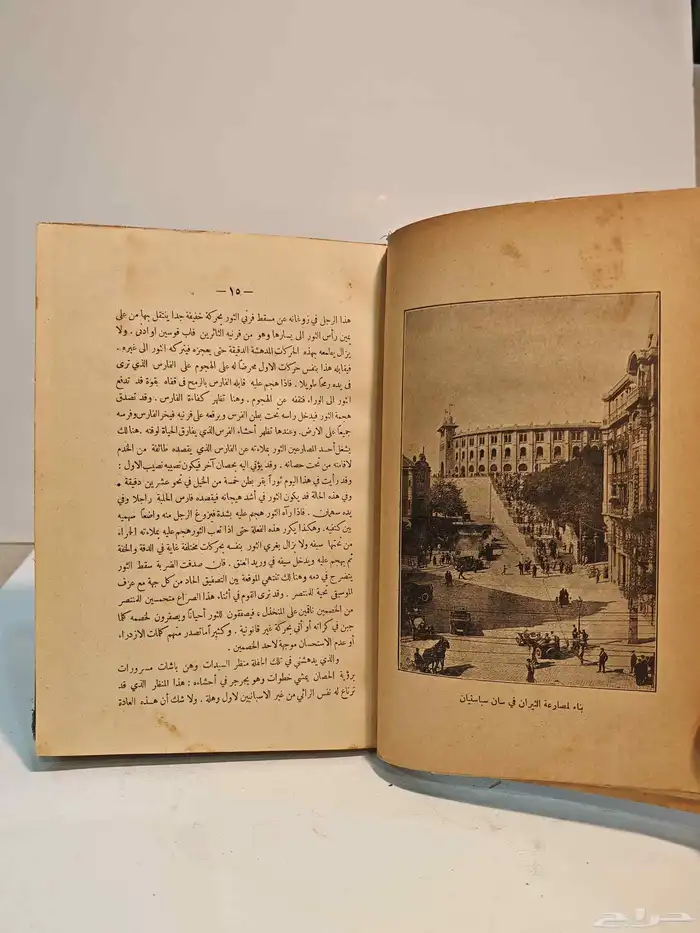 — ١٥ —
هذا الرجل في زوغانه عن مسقط قرني الثور بحركة خفيفة جدا ينتقل بها من على
يمين رأس الثور الى يسارها وهو من قرنيه الثائرين قاب قوسين او ادنى . ولا
يزال يلاعبه بهذه الحركات المدهشة الدقيقة حتى يعجزه فيتركه الثور الى غيره ..
فيقابله هذا بنفس حركات الاول محرضاً له على الهجوم على الفارس الذي ترى
في يده رمحاً طويلا . فاذا هجم عليه قابله الفارس بالرمح في قفاه بقوة قد تدفع
الثور الى الوراء فتقفه عن الهجوم . وهنا تظهر كفاءة الفارس . وقد تصدق
هجمة الثور فيدخل راسه تحت بطن الفرس ويرفعه على قرنيه فيخر الفارس وفرسه
جميعاً على الارض. وعندها تظهر أحشاء الفرس الذي يفارق الحياة لوقته . هنالك
يشغل أحد المصارعين الثور بملاءته عن الفارس الذي يقصده طائفة من الخدم
لاقامته من تحت حصانه . وقد يؤتى اليه بحصان آخر فيكون نصيبه نصيب الاول :
وقد رأيت في هذا اليوم ثوراً بقر بطن خمسة من الخيل في نحو عشرين دقيقة .
وفي هذه الحالة قد يكون الثور في أشد هيجانه فيقصده فارس الحلبة راجلا وفي
يده سهمان . فاذا رآه الثور هجم عليه بشدة فيزوغ الرجل منه واضعاً سهميه
بين كتفيه. وهكذا يكرر هذه الفعلة حتى اذا تعب الثور هجم عليه بملاءته الحمراء
من تحتها سيفه ولا يزال يغري الثور بنفسه بحركات مختلفة غاية في الدقة والخفة
ثم يهجم عليه ويدخل سيفه في وريد العنق . فان صدقت الضربة سقط الثور
يتضرج في دمه وهنالك تنتهي الموقعة بين التصفيق الحاد من كل جهة مع عزف
الموسيقى تحية للمنتصر . وقد ترى القوم في أثناء هذا الصراع متحمسين للمنتصر
من الخصمين ناقمين على المنخذل ، فيصفقون للثور أحياناً ويصفرون لخصمه كلما
جبن في كراته أو أتى بحركة غير قانونية . وكثيراً ما تصدر منهم كلمات الازدراء
أو عدم الاستحسان موجهة لاحد الخصمين .
والذي يدهشني في تلك الحفلة منظر السيدات وهن باشات مسرورات
برؤية الحصان يمشي خطوات وهو يجرجر في أحشاءه : هذا المنظر الذي قد
ترتاع له نفس الرائي من غير الاسبانيين لاول وهلة . ولا شك أن هذه العادة
بناء لمصارعة الثيران في سان سباستيان
حراج